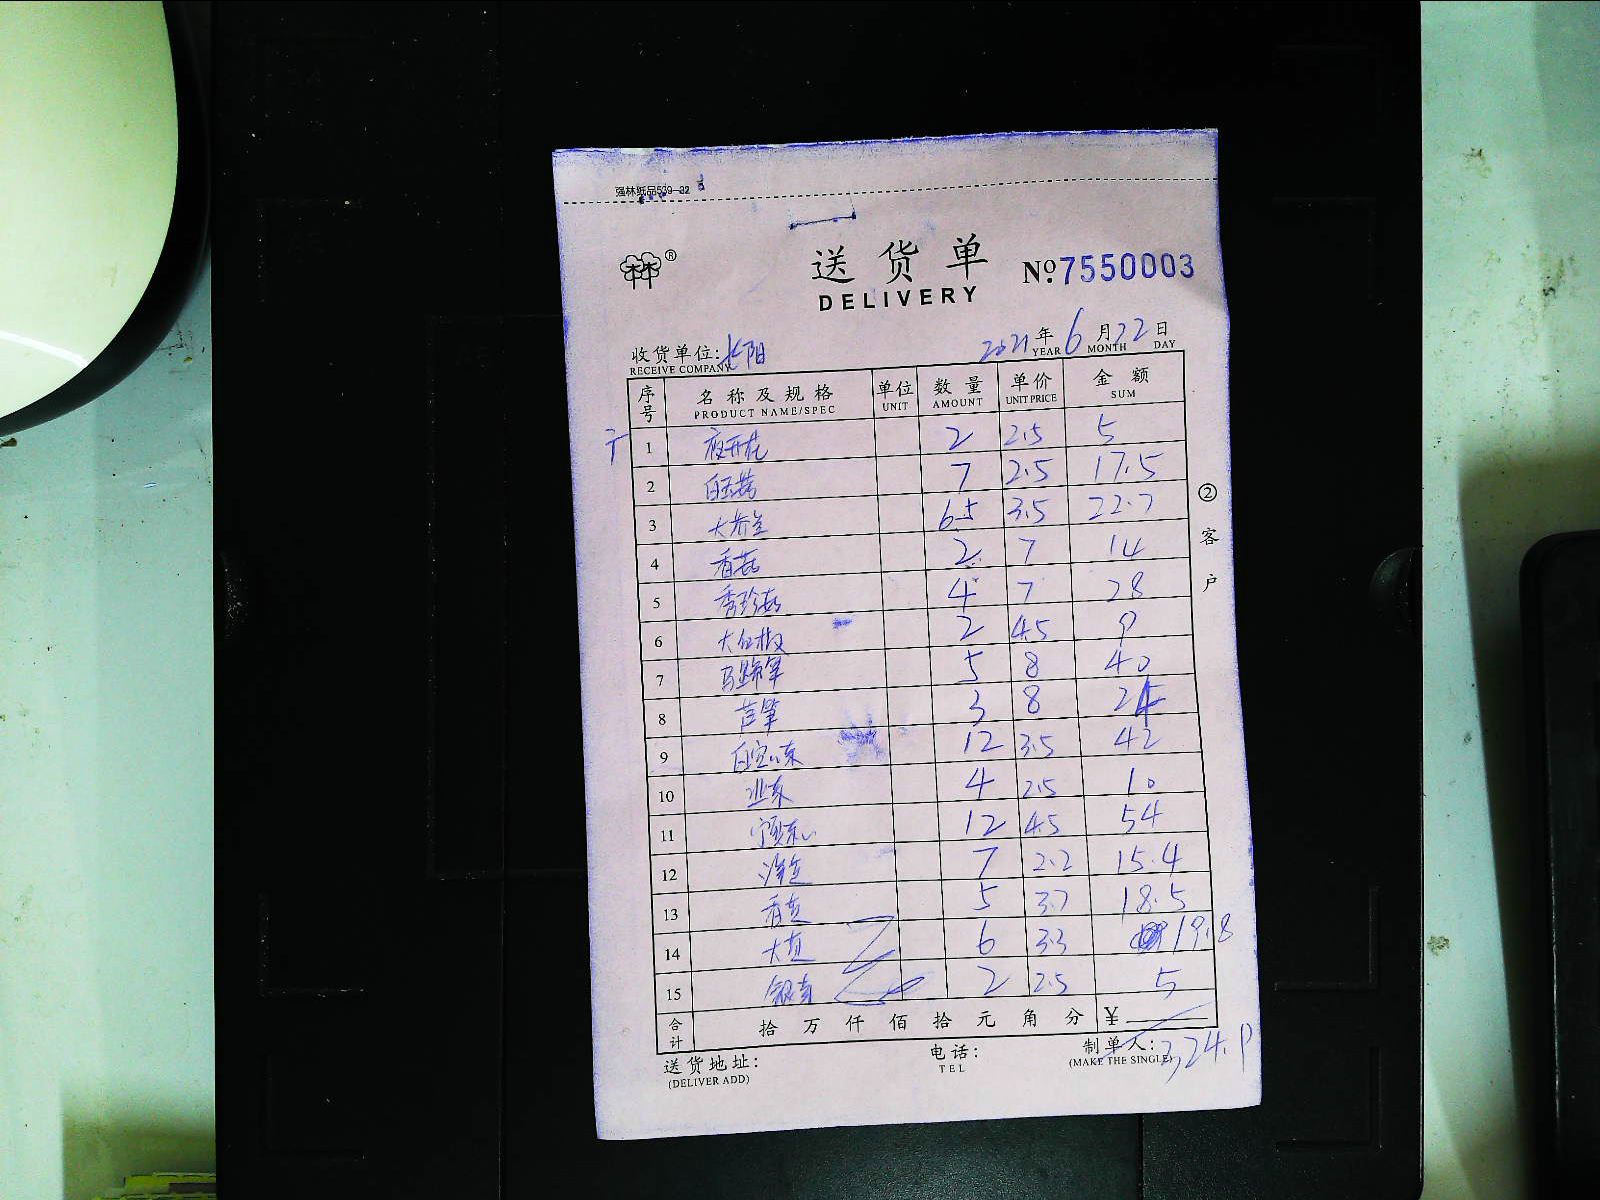 强林纸品539-32
林®
送货单
DELIVERY
No.7550003
收货单位: 长阳
RECEIVE COMPANY
2021年6月22日
YEAR MONTH DAY
序号 名称及规格 单位 数量 单价 金额
PRODUCT NAME/SPEC UNIT AMOUNT UNIT PRICE SUM
1 夜开花 2 2.5 5
2 白玉菇 7 2.5 17.5
3 6.5 3.5 22.7
4 香菇 2 7 14
5 秀珍菇 4 7 28
6 大红椒 2 4.5 9
7 5 8 40
8 3 8 24
9 12 3.5 42
10 4 2.5 10
11 12 4.5 54
12 7 2.2 15.4
13 5 3.7 18.5
14 6 3.3 19.8
15 2 2.5 5
合计 拾 万 仟 佰 拾 元 角 分 ¥
324.9
送货地址: 电话: 制单人:
(DELIVER ADD) TEL (MAKE THE SINGLE)
②客户